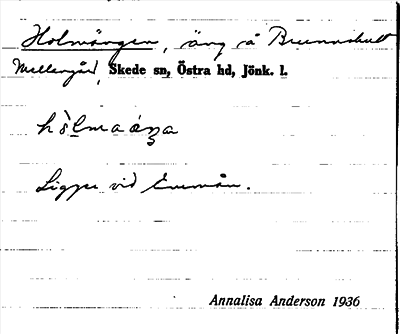 Holmängen, äng å Brunnshult
Mellangård, Skede sn, Östra hd, Jönk. l.
Ligger vid Emmån.
Annalisa Anderson 1936